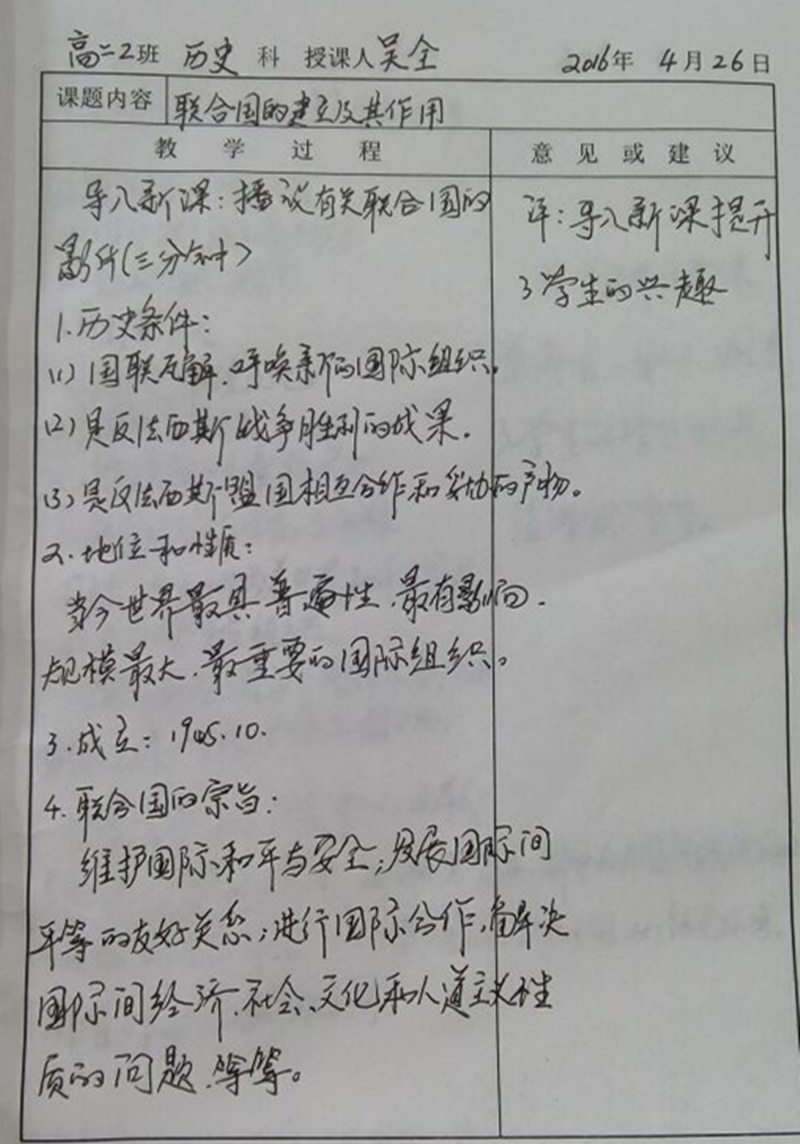 高二2班 历史 科 授课人 吴全 2016年 4月26日
课题内容 联合国的建立及其作用
教学过程 意见或建议
导入新课：播放有关联合国的
影片(三分钟)
评：导入新课提升
了学生的兴趣
1.历史条件：
(1)国联瓦解、呼唤新的国际组织。
(2)是反法西斯战争胜利的成果.
(3)是反法西斯盟国相互合作和妥协的产物。
2.地位和性质：
当今世界最具普遍性、最有影响、
规模最大、最重要的国际组织。
3.成立：1945.10.
4.联合国的宗旨：
维护国际和平与安全；发展国际间
平等的友好关系；进行国际合作，解决
国际间经济、社会、文化和人道主义性
质的问题、等等。